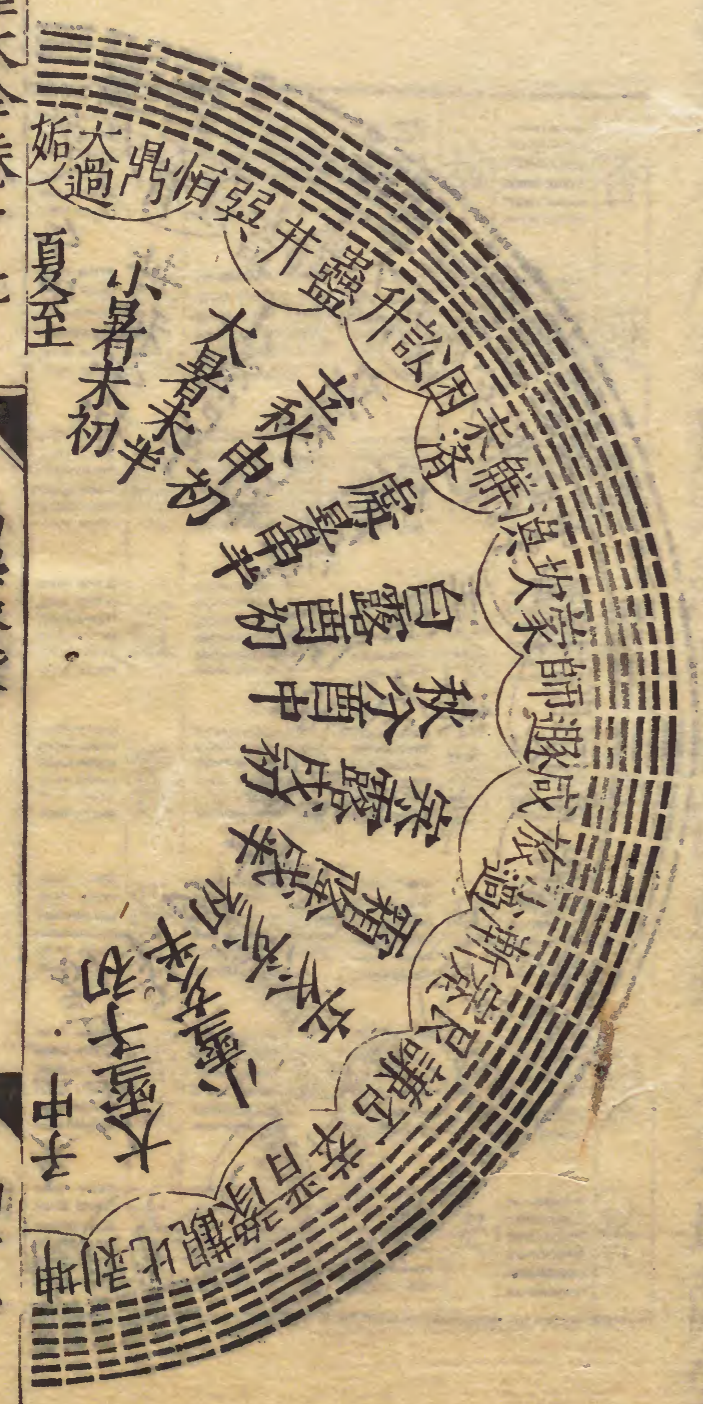 姤
大過
鼎
恒
巽
井
蠱
升
訟
困
未濟
解
渙
坎
蒙
師
遯
咸
旅
小過
漸
蹇
艮
謙
否
萃
晋
豫
觀
比
剥
坤
夏至
小暑未初
大暑未半
立秋申初
處暑申半
白露酉初
秋分酉中
寒露戌初
霜降戌半
立冬亥初
小雪亥半
大雪子初
子中